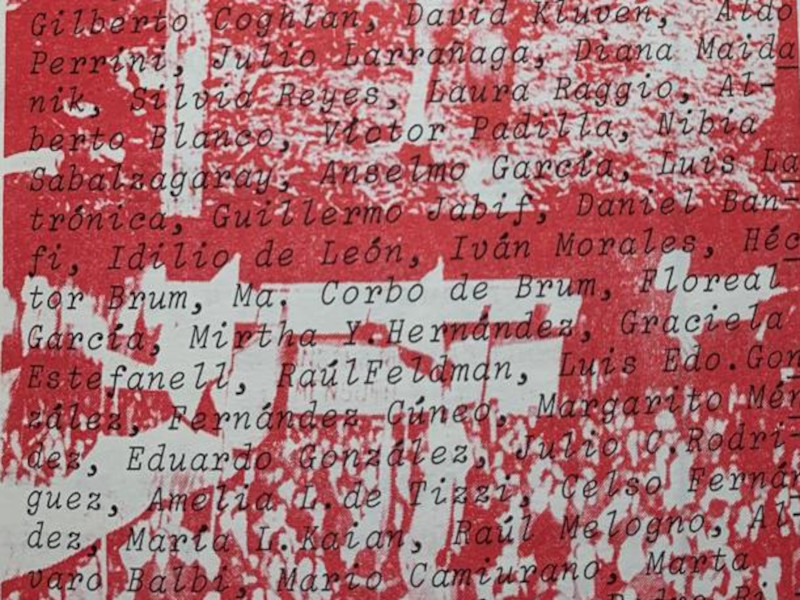 Gilberto Coghlan, David Kluven, Aldo
Perrini, Julio Larrañaga, Diana Maida
nik, Silvia Reyes, Laura Raggio, Al-
berto Blanco, Víctor Padilla, Nibia
Sabalzagaray, Anselmo García, Luis La
trónica, Guillermo Jabif, Daniel Ban-
fi, Idilio de León, Iván Morales, Héc
tor Brum, Ma. Corbo de Brum, Floreal
García, Mirtha Y.Hernández, Graciela
Estefanell, RaúlFeldman, Luis Edo.Gon
zález, Fernández Cúneo, Margarito Mén
dez, Eduardo González, Julio C.Rodrí-
guez, Amelia L.de Tizzi, Celso Fernán
dez, María L.Kaian, Raúl Melogno, Al-
varo Balbi, Mario Camiurano, Marta